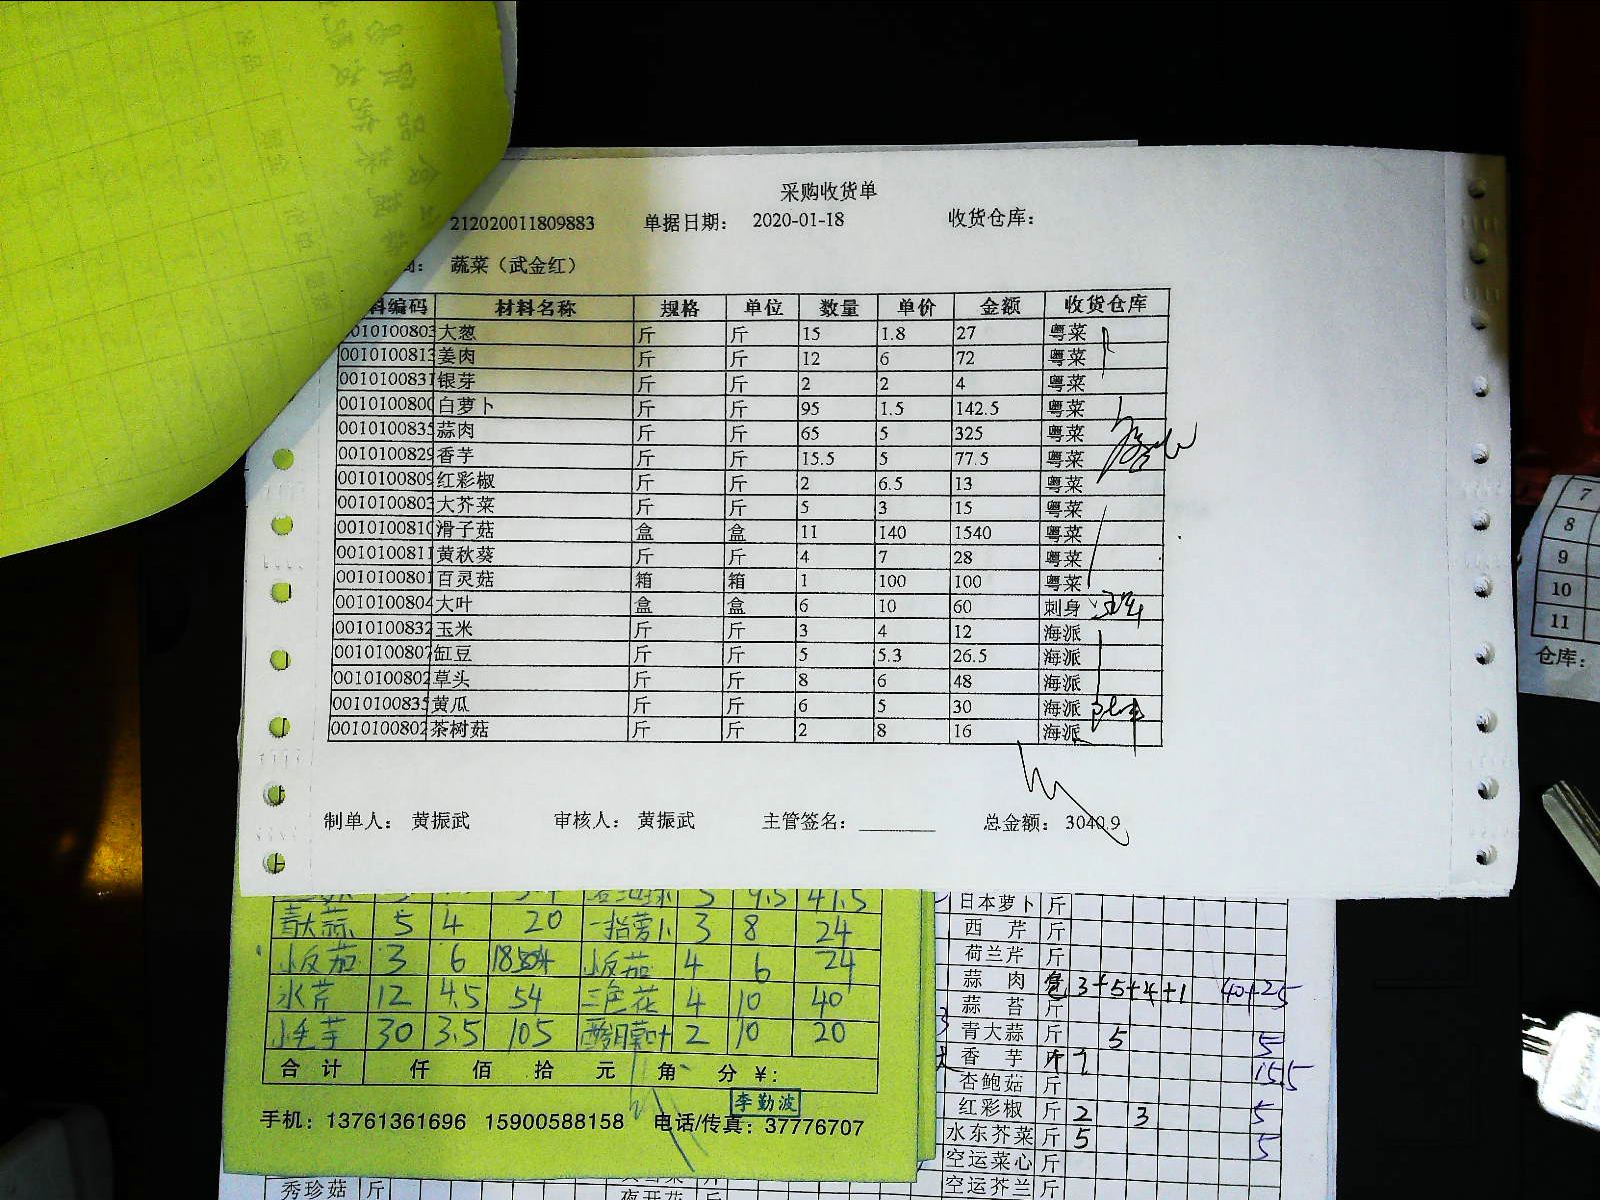 采购收货单
212020011809883 单据日期： 2020-01-18 收货仓库：
蔬菜（武金红）
料编码 材料名称 规格 单位 数量 单价 金额 收货仓库
0010100803 大葱 斤 斤 15 1.8 27 粤菜
0010100813 姜肉 斤 斤 12 6 72 粤菜
0010100831 银芽 斤 斤 2 2 4 粤菜
0010100800 白萝卜 斤 斤 95 1.5 142.5 粤菜
0010100835 蒜肉 斤 斤 65 5 325 粤菜
0010100829 香芋 斤 斤 15.5 5 77.5 粤菜
0010100809 红彩椒 斤 斤 2 6.5 13 粤菜
0010100803 大芥菜 斤 斤 5 3 15 粤菜
0010100810 滑子菇 盒 盒 11 140 1540 粤菜
0010100811 黄秋葵 斤 斤 4 7 28 粤菜
0010100801 百灵菇 箱 箱 1 100 100 粤菜
0010100804 大叶 盒 盒 6 10 60 刺身
0010100832 玉米 斤 斤 3 4 12 海派
0010100807 缸豆 斤 斤 5 5.3 26.5 海派
0010100802 草头 斤 斤 8 6 48 海派
0010100835 黄瓜 斤 斤 6 5 30 海派
0010100802 茶树菇 斤 斤 2 8 16 海派
制单人： 黄振武 审核人： 黄振武 主管签名： 总金额： 3040.9
青大蒜 5 4 20 一指萝卜 3 8 24
小反茄 3 6 18 小反茄 4 6 24
水芹 12 4.5 54 三色花 4 10 40
小毛芋 30 3.5 105 2 10 20
合 计 仟 佰 拾 元 角 分 ¥：
李勤波
手机：13761361696 15900588158 电话/传真：37776707
日本萝卜 斤
西 芹 斤
荷兰芹 斤
蒜 肉 3+5+4+1 40+25
蒜 苔 斤
青大蒜 斤 5 5
香 芋 斤 15.5
杏鲍菇 斤
红彩椒 斤 2 3 5
水东芥菜 斤 5 5
空运菜心 斤
空运芥兰 斤
秀珍菇 斤
7
8
9
10
11
仓库：